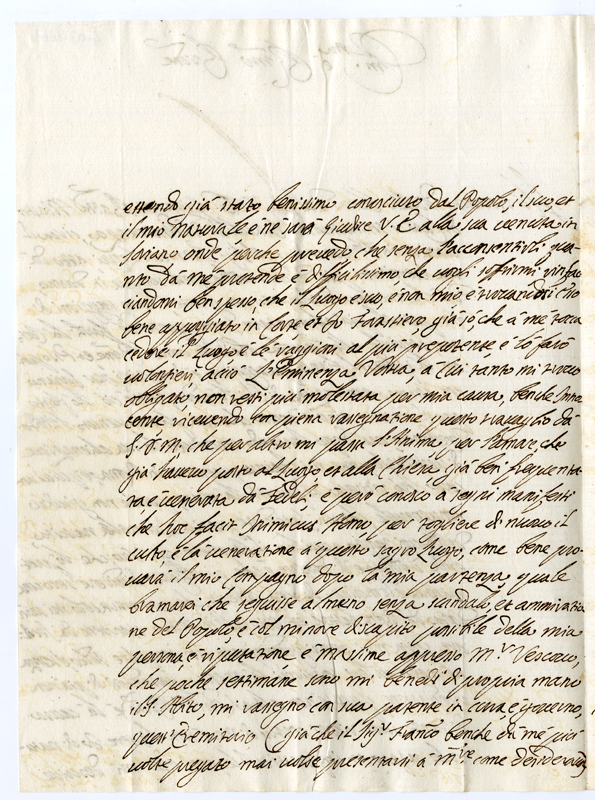 essendo già stato benissimo conosciuto dal Popolo, il suo, et
il mio naturale è ne sarà Giudice V. E. alla sua venuta in
onde perche prevedo che senza l'acconsentirli, qua-
nto dà me pretende è dificilissimo che vogli soffrirmi
ciandomi ben spesso, che il luogo è suo, è non mio, è
bene appoggiato in Corte et Io forastiero già sò, che à me tocca
cedere il luogo è le raggioni al più prepotente, è lo farò
volontieri, acciò L'Eminenza Vostra, a Cui tanto mi trovo
obligato non resti più molestata per mia causa, benche Inno-
cente ricevendo con piena rassegnatione questo travaglio dà
che per altro mi passa l'Anima per l'Amor, che
già havevo posto al Luogo et alla Chiesa, già ben frequenta-
ta è venerata dà Fedeli; è però conosco à segni manifesti
che hoc facit Inimicus Homo, per togliere di nuovo il
culto, è la veneratione à questo sagro luogo, come bene pro-
verà il mio Compagno dopo la mia partenza, quale
bramarei che seguisse al meno senza scandalo, et ammiratio-
ne del Popolo, è col minore discapito possibile della mia
persona, è riputatione, è massime appresso Vescovo,
che poche settimane sono mi benedì di propria mano
il S. Abito, mi rassegnò con sua patente in cura, e governo,
quest'Eremitorio (già che il Franco benche dà me più
volte pregato mai volse presentarsi à come desiderava)